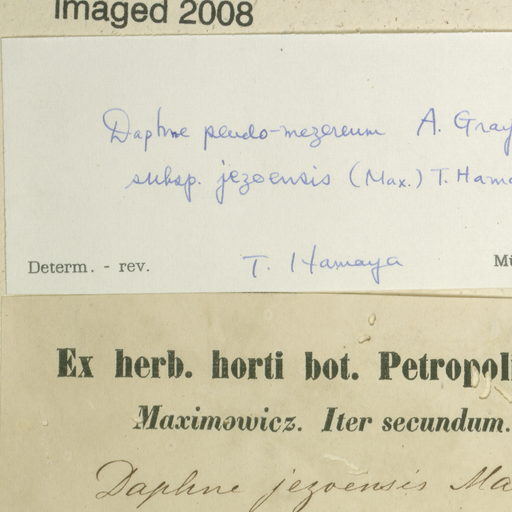 Imaged 2008
Daphne pseudo-mezereum A. Gray
subsp. jezoensis (Max.) T. Hama
Determ. - rev. T. Hamaya Mü
Ex herb. horti bot. Petropoli
Maximowicz. Iter secundum.
Daphne jezoensis Ma